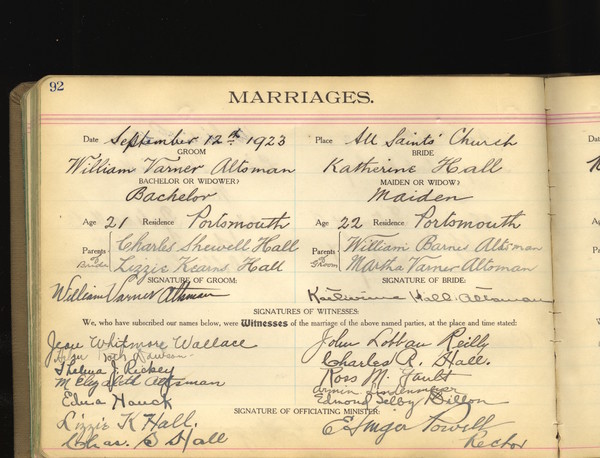 92
MARRIAGES.
Date September 12th 1923 Place All Saints' Church
GROOM BRIDE
William Varner Altsman Katherine Hall
BACHELOR OR WIDOWER? MAIDEN OR WIDOW?
Bachelor Maiden
Age 21 Residence Portsmouth Age 22 Residence Portsmouth
Parents of Bride Charles Shewell Hall Parents of Groom William Barnes Altsman
Lizzie Kearns Hall Martha Varner Altsman
SIGNATURE OF GROOM: SIGNATURE OF BRIDE:
William Varner Altsman Hall Altsman
SIGNATURES OF WITNESSES:
We, who have subscribed our names below, were Witnesses of the marriage of the above named parties, at the place and time stated:
Jean Whitmore Wallace John Lobban Reilly
Charles R. Hall.
Thelma J. Rickey Ross M. Gault
M Elizabeth Altsman
Edna Hauck Edmond Selby Dillon
SIGNATURE OF OFFICIATING MINISTER:
Lizzie K Hall. E Ainger Powell
Chas. S Hall Rector